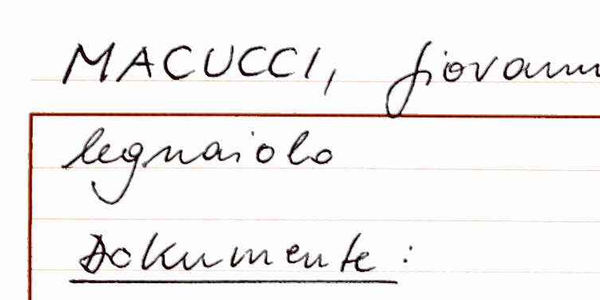 MACUCCI, Giovanni
legnaiolo
Dokumente: